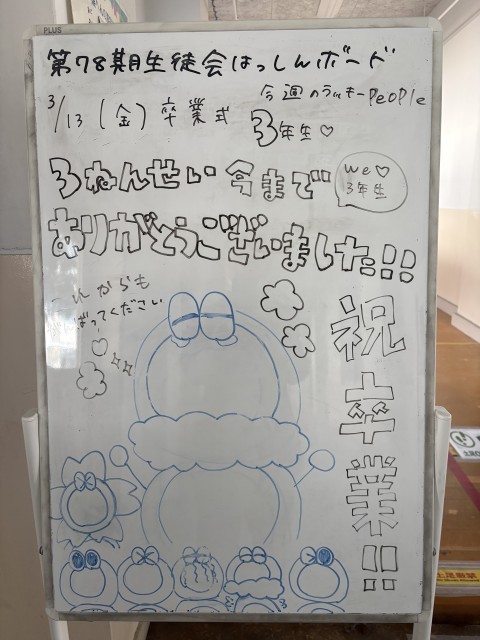 PLUS
第78期生徒会はっしんボード
3/13(金)卒業式
今週のラッキーPeoPle
3年生♡
3ねんせい今まで
ありがとうございました!!
we♡
3年生
これからも
ばってください
祝卒業!!